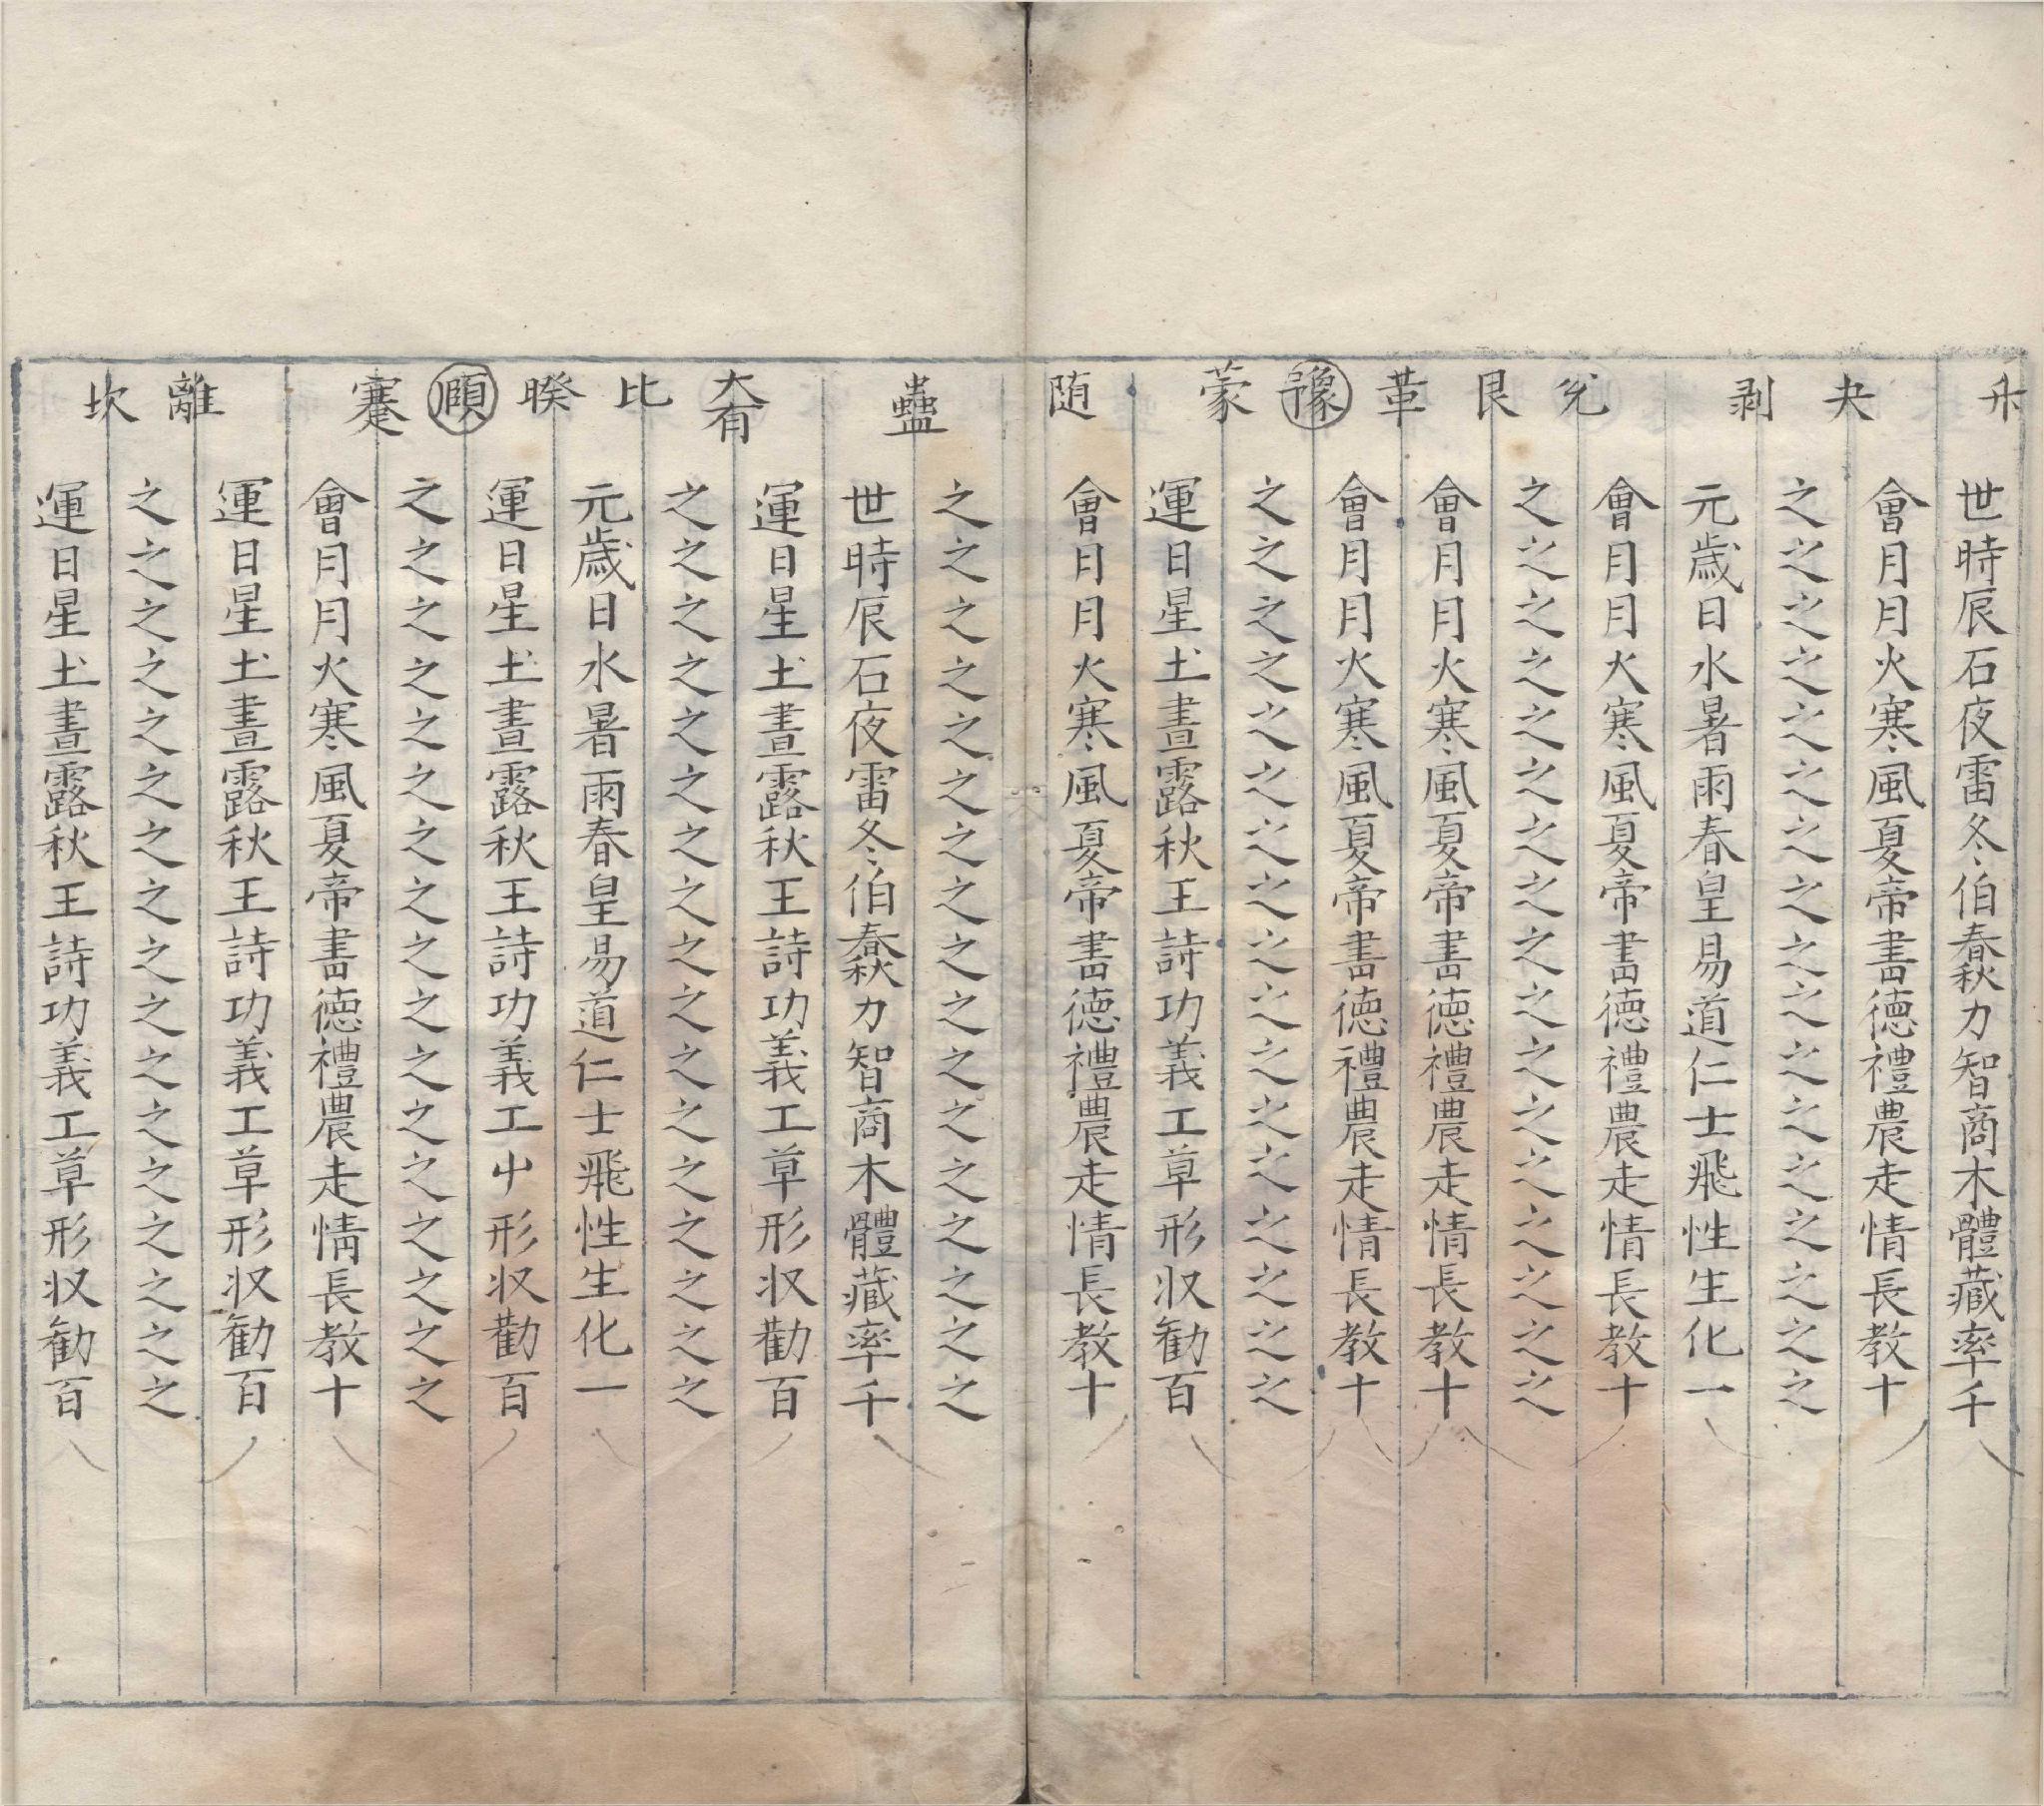 升 夬 剥 兌 艮 革 豫 蒙 随
世時辰石夜雷冬伯春秋力智商木體藏率千
會月月火寒風夏帝書徳禮農走情長教十
之之之之之之之之之之之之之之之之之
元歲日水暑雨春皇易道仁士飛性生化一
會月月火寒風夏帝書徳禮農走情長教十
之之之之之之之之之之之之之之之之之
會月月火寒風夏帝書徳禮農走情長教十
會月月火寒風夏帝書徳禮農走情長教十
之之之之之之之之之之之之之之之之之
運日星土晝露秋王詩功義工草形収勧百
會日月火寒風夏帝書徳禮農走情長教十
蠱 大有 比 睽 頤 蹇 離 坎
之之之之之之之之之之之之之之之之之
世時辰石夜雷冬伯春秋力智商木體藏率千
運日星土晝露秋王詩功義工草形収勸百
之之之之之之之之之之之之之之之之之
元歲日水暑雨春皇易道仁士飛性生化一
運日星土晝露秋王詩功義工屮形収勸百
之之之之之之之之之之之之之之之之之
會月月火寒風夏帝書徳禮農走情長教十
運日星土晝露秋王詩功義工草形収勧百
之之之之之之之之之之之之之之之之之
運日星土晝露秋王詩功義工草形収勧百